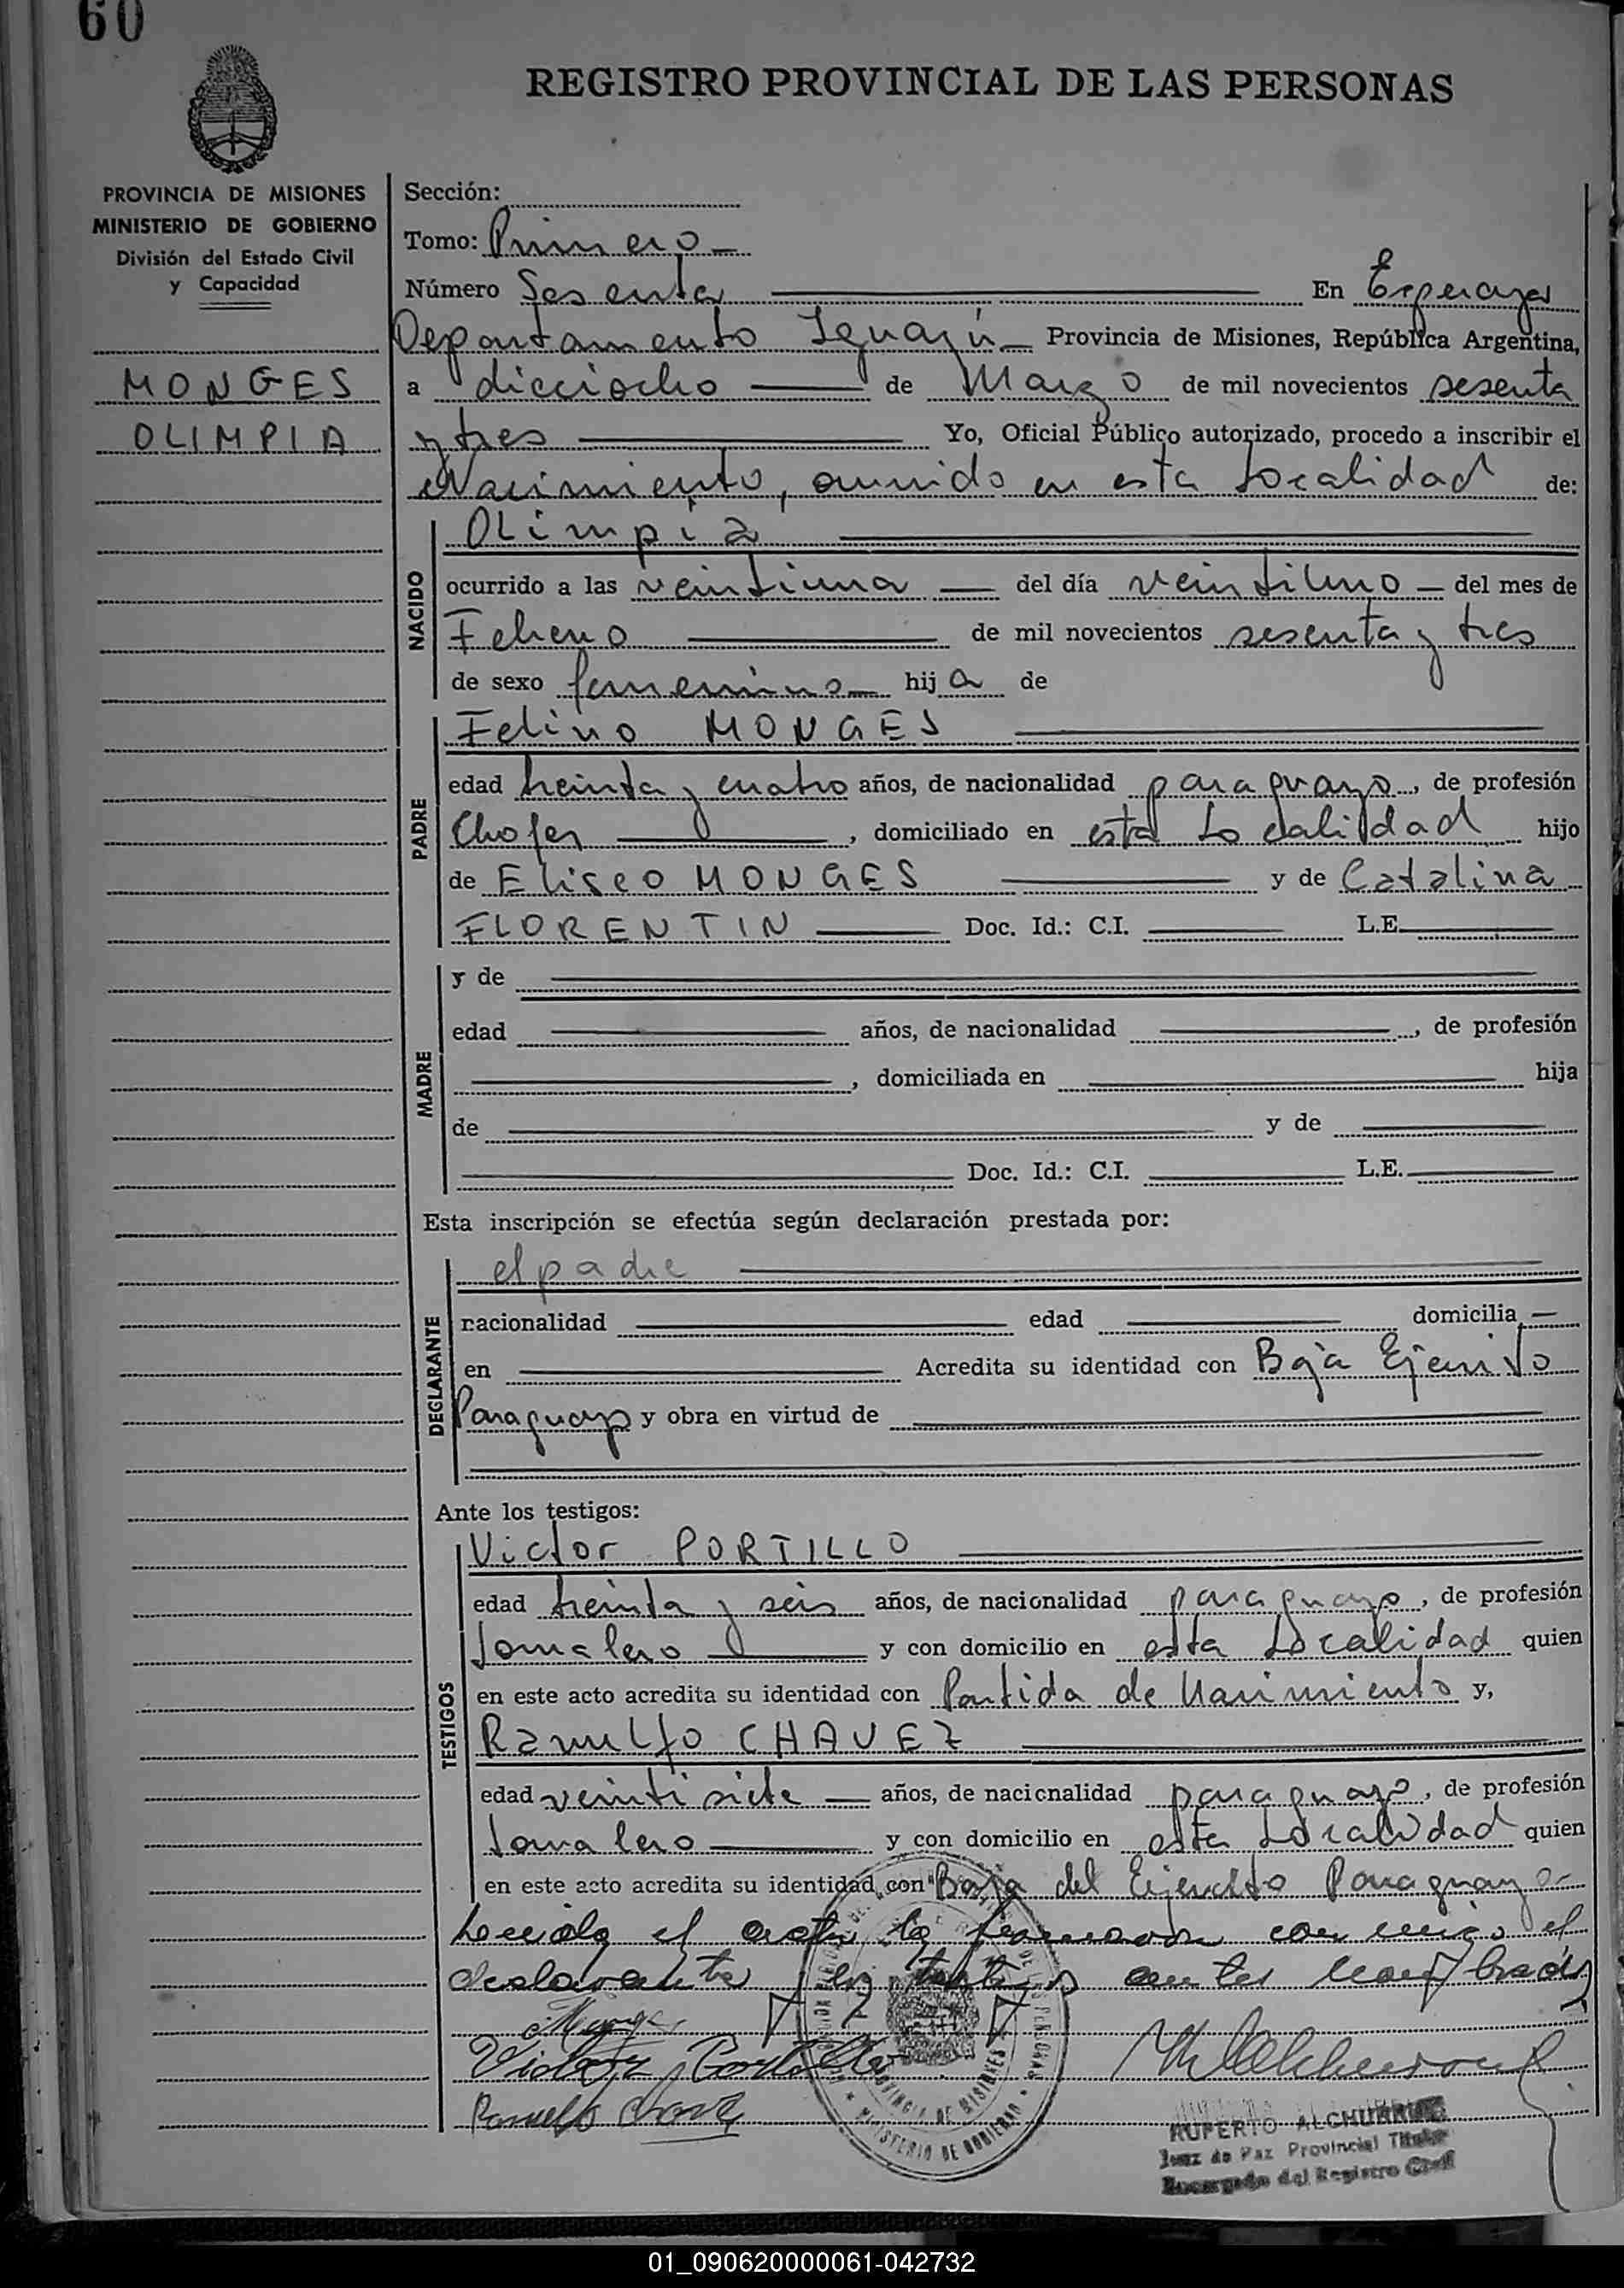 60
REGISTRO PROVINCIAL DE LAS PERSONAS
PROVINCIA DE MISIONES
MINISTERIO DE GOBIERNO
División del Estado Civil
y Capacidad
MONGES
OLIMPIA
Sección:
Tomo: Primero
Número Sesenta En Esperanza
Departamento Iguazú Provincia de Misiones, República Argentina,
a dieciocho de Marzo de mil novecientos sesenta
y tres Yo, Oficial Público autorizado, procedo a inscribir el
Nacimiento, ocurrido en esta Localidad de:
NACIDO
Olimpia
ocurrido a las veintiuna del día veintiuno del mes de
Febrero de mil novecientos sesenta y tres
de sexo femenino hija de
PADRE
Felino MONGES
edad treinta y cuatro años, de nacionalidad paraguayo, de profesión
Chofer, domiciliado en esta Localidad hijo
de Eliseo MONGES y de Catalina
FLORENTIN Doc. Id.: C.I. L.E.
MADRE
y de
edad años, de nacionalidad , de profesión
, domiciliada en hija
de y de
Doc. Id.: C.I. L.E.
Esta inscripción se efectúa según declaración prestada por:
DECLARANTE
el padre
nacionalidad edad domicilia
en Acredita su identidad con Baja Ejercito
Paraguayo y obra en virtud de
Ante los testigos:
TESTIGOS
Victor PORTILLO
edad treinta y seis años, de nacionalidad paraguayo, de profesión
Jornalero y con domicilio en esta Localidad quien
en este acto acredita su identidad con Partida de Nacimiento y,
Ramulfo CHAVEZ
edad veintisiete años, de nacionalidad paraguayo, de profesión
Jornalero y con domicilio en esta Localidad quien
en este acto acredita su identidad con Baja del Ejercito Paraguayo
Leida el acta la firmaron conmigo el
declarante y los testigos antes nombrados
Monges
Victor Portillo
Ramulfo Chavez
PROVINCIA DE MISIONES
MINISTERIO DE GOBIERNO
RUPERTO ALCHURRUT
Juez de Paz Provincial Titular
Encargado del Registro Civil
01_090620000061-042732